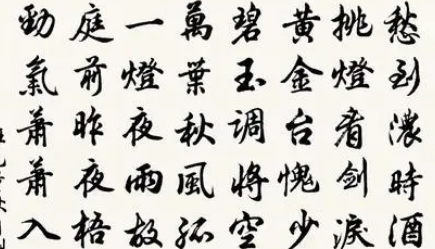 愁到濃時酒
挑燈看劍淚
黃金台愧少
碧玉调將空
萬葉秋風孤
一燈夜雨故
庭前昨夜梧
勁氣蕭蕭入